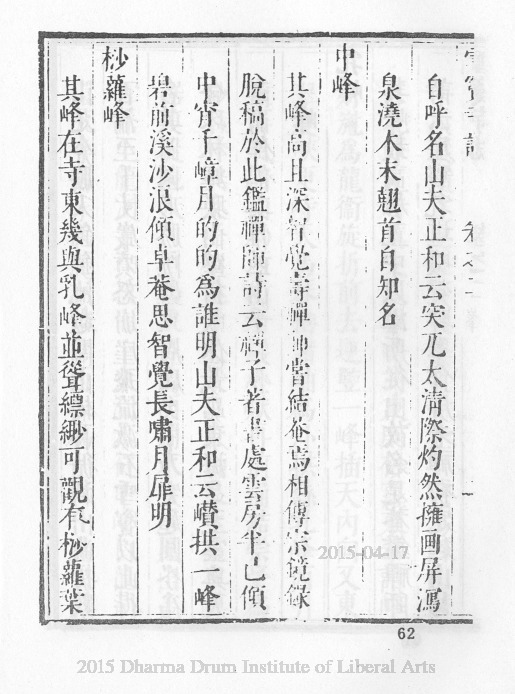 雪竇寺誌 卷之二
自呼名山夫正和云突兀太清際灼然擁画屏瀉
泉澆木末翹首自知名
中峰
其峰高且深智覺壽禪師嘗結菴焉相傳宗鏡錄
脫稿於此鑑禪師詩云禪子著書處雲房半已傾
中宵千嶂月的的為誰明山夫正和云巑拱一峰
碧前溪沙浪傾卓菴思智覺長嘯月扉明
桫蘿峰
其峰在寺東幾與乳峰並聳縹緲可觀有桫蘿葉
2015-04-17
62
2015 Dharma Drum Institute of Liberal Arts